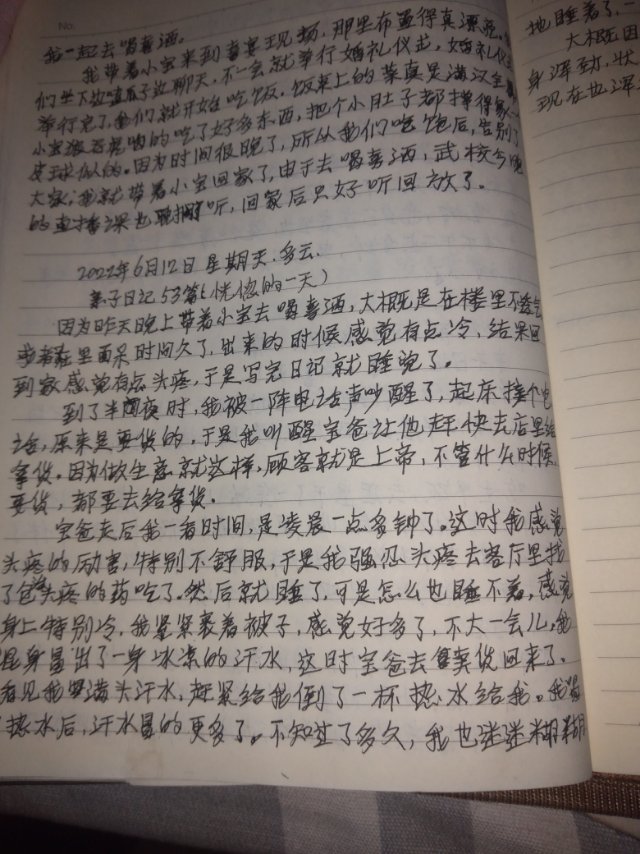 No.
我一起去喝喜酒。
我带着小宝来到喜宴现场,那里布置得真漂亮。
们坐下边嗑瓜子边聊天,不一会就举行婚礼仪式,婚礼仪式
举行完了,我们就开始吃饭。饭桌上的菜真是满汉全
小宝狼吞虎咽的吃了好多东西,把个小肚子都撑得
皮球似的。因为时间很晚了,所以我们吃饱后,告别了
大家,我就带着小宝回家了,由于去喝喜酒,武校今晚
的直播课也耽搁听,回家后只好听回放了。
2022年6月12日 星期天.多云.
亲子日记53篇(恍惚的一天)
因为昨天晚上带着小宝去喝喜酒,大概是在楼里不透气
在里面呆时间久了,出来的时候感觉有点冷,结果回
到家感觉有点头疼,于是写完日记就睡觉了。
到了半夜时,我被一阵电话声吵醒了,起床接个电
话,原来是要货的,于是我叫醒宝爸让他赶快去店里给
拿货。因为做生意就这样,顾客就是上帝,不管什么时候
要货,都要去给拿货。
宝爸走后我一看时间,是凌晨一点多钟了。这时我感觉
头疼的厉害,特别不舒服,于是我强忍头疼去客厅里找
了包头疼的药吃了。然后就睡了,可是怎么也睡不着,感觉
身上特别冷,我紧紧裹着被子,感觉好多了,不大一会儿,我
浑身冒出了一身冰凉的汗水,这时宝爸去拿货回来了。
看见我满头汗水,赶紧给我倒了一杯热水给我。我喝
热水后,汗水冒的更多了。不知过了多久,我也迷迷糊糊
地睡着了,一
大概因
身浑劲,状
现在也浑